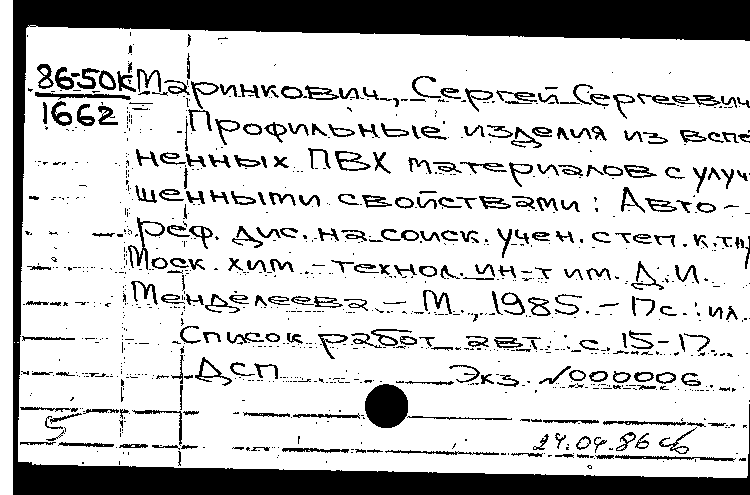 86-50К Маринкович, Сергей Сергеевич
1662
Профильные изделия из вспе-
ненных ПВХ материалов с улуч
шенными свойствами: Авто-
реф. дис. на соиск. учен. степ. к.т.н
Моск. хим.-технол. ин-т им. Д.И.
Менделеева. - М., 1985. - 17с.: ил.
Список работ авт.: с. 15-17
ДСП Экз. №000006.
5
24.04.86